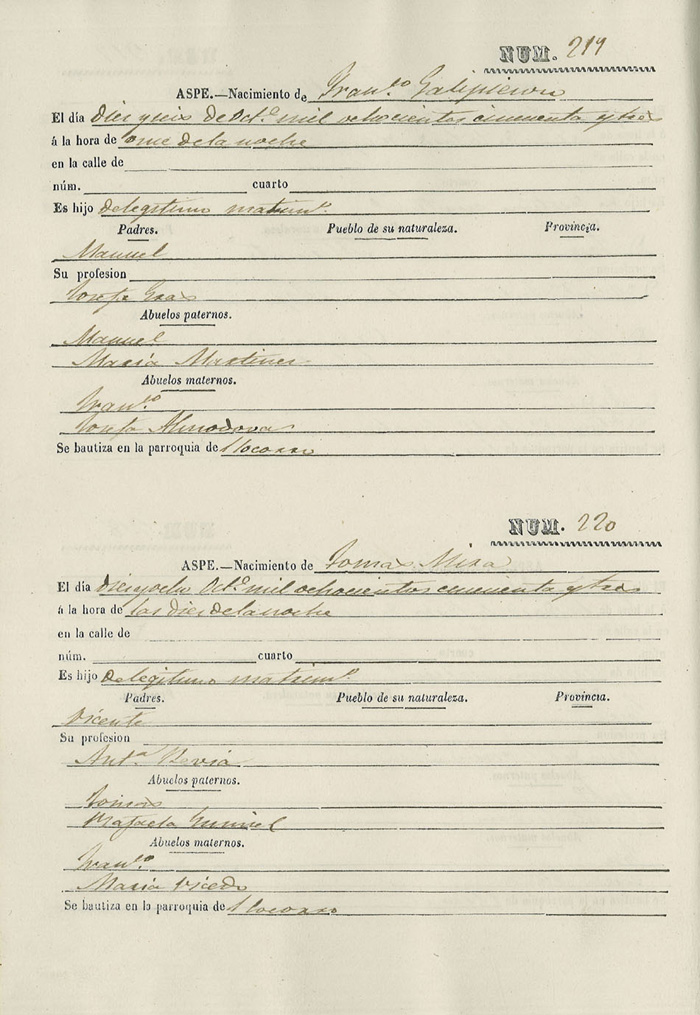 NUM. 219
ASPE.—Nacimiento de Fran.co Galipienso
El día Diez y seis de Oct.e mil ochocientos cincuenta y tres
á la hora de once de la noche
en la calle de
núm. cuarto
Es hijo de legitimo matrim.o
Padres. Pueblo de su naturaleza. Provincia.
Manuel
Su profesion
Josefa Gras
Abuelos paternos.
Manuel
Maria Martinez
Abuelos maternos.
Fran.co
Josefa Almodovar
Se bautiza en la parroquia de Socorro
NUM. 220
ASPE.—Nacimiento de Tomas Mira
El día diez y ocho Oct.e mil ochocientos cincuenta y tres
á la hora de las diez de la noche
en la calle de
núm. cuarto
Es hijo de legitimo matrim.o
Padres. Pueblo de su naturaleza. Provincia.
Vicente
Su profesion
Ant.a
Abuelos paternos.
Tomas
Rafaela
Abuelos maternos.
Fran.co
Maria Vicedo
Se bautiza en la parroquia de Socorro